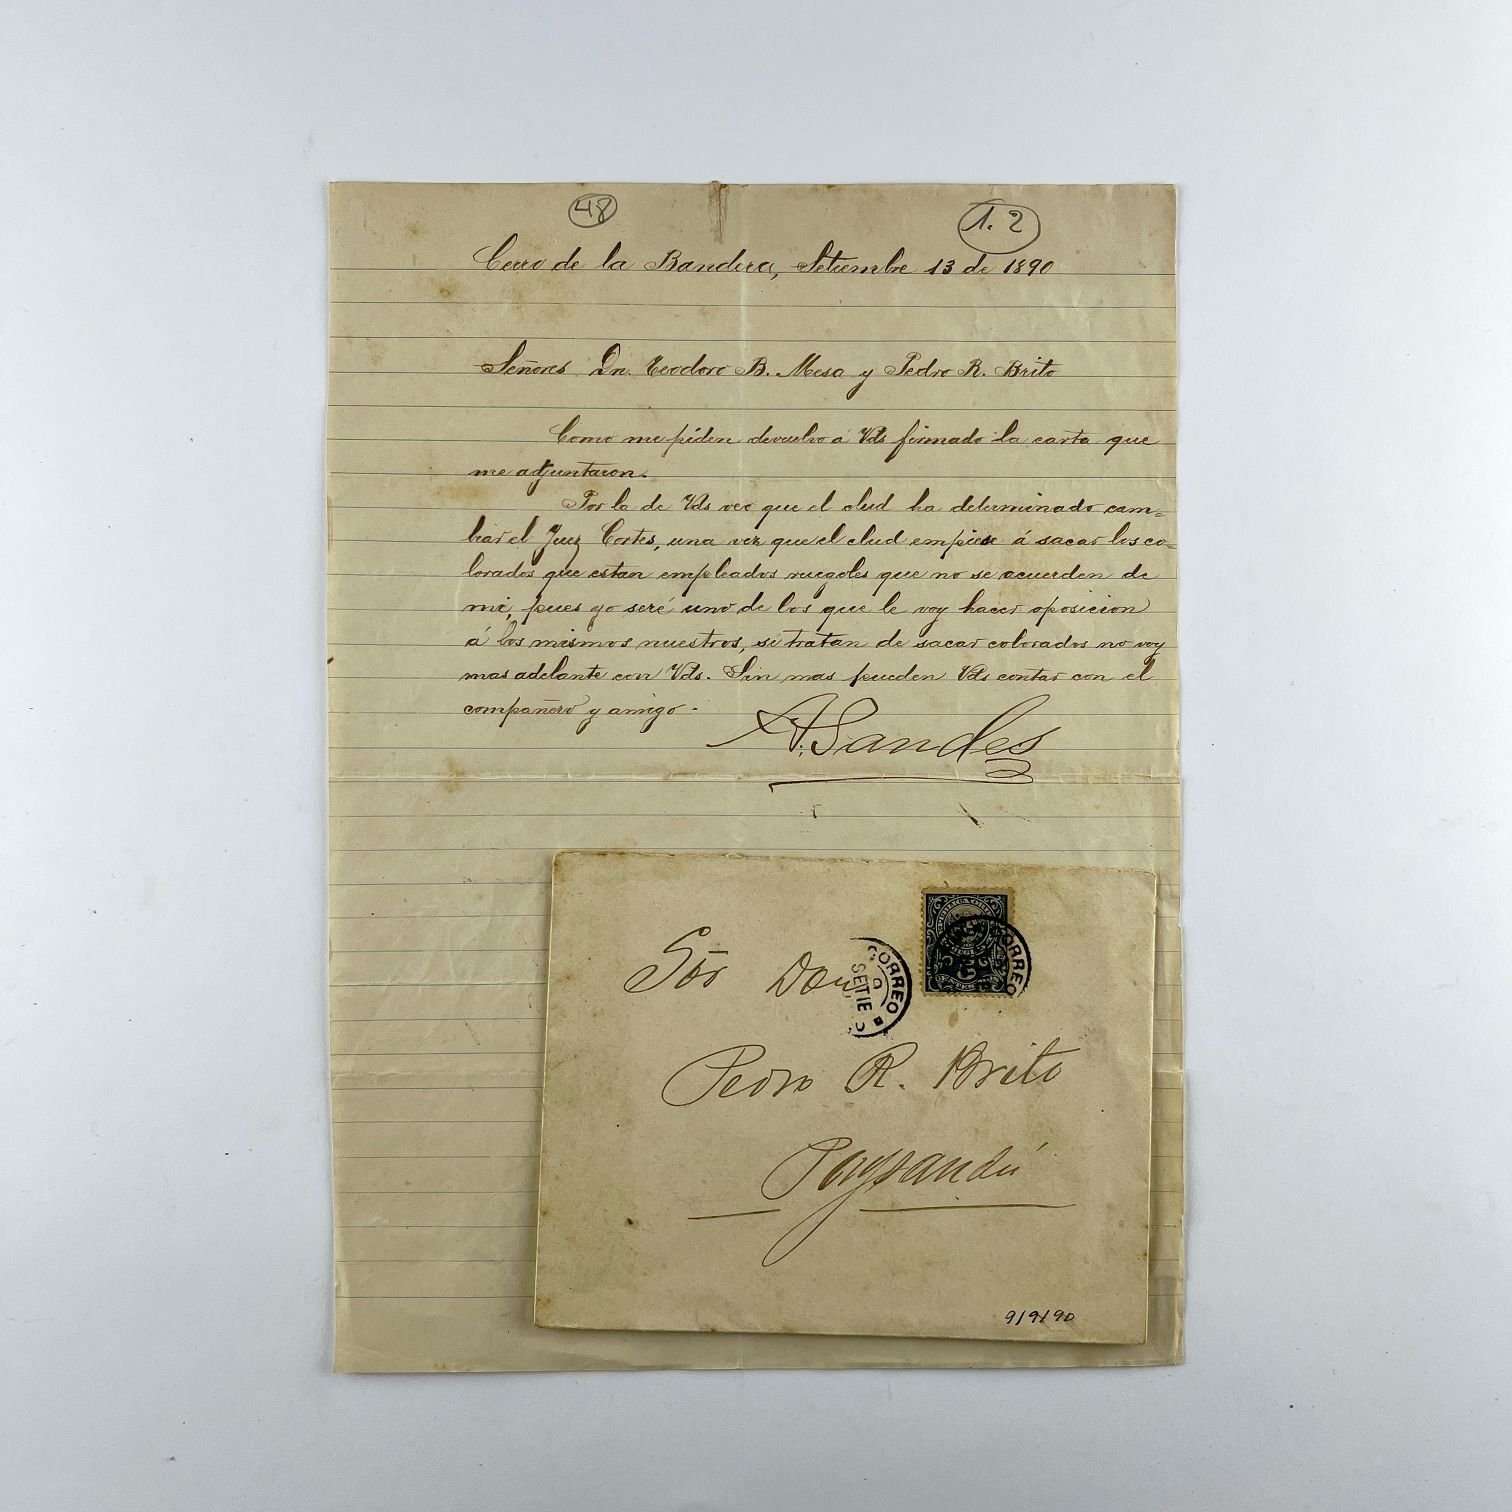 48
1. 2
Cerro de la Bandera, Setiembre 13 de 1890
Señores Dn. Teodoro B. Mesa y Pedro R. Brito
Como me piden devuelvo á Vds firmado la carta que
me adjuntaron.
Por la de Vds veo que el clud ha determinado cam=
biar el Juez Cortes, una vez que el clud empiese á sacar los co=
lorados que estan empleados ruegoles que no se acuerden de
mi, pues yo seré uno de los que le voy hacer oposicion
á los mismos nuestros, si tratan de sacar colorados no voy
mas adelante con Vds. Sin mas pueden Vds contar con el
compañero y amigo.
A. Sandes
CORREO
CORREO
SETIE
5
Sór Don
Pedro R. Brito
Paysandú
9/9/90